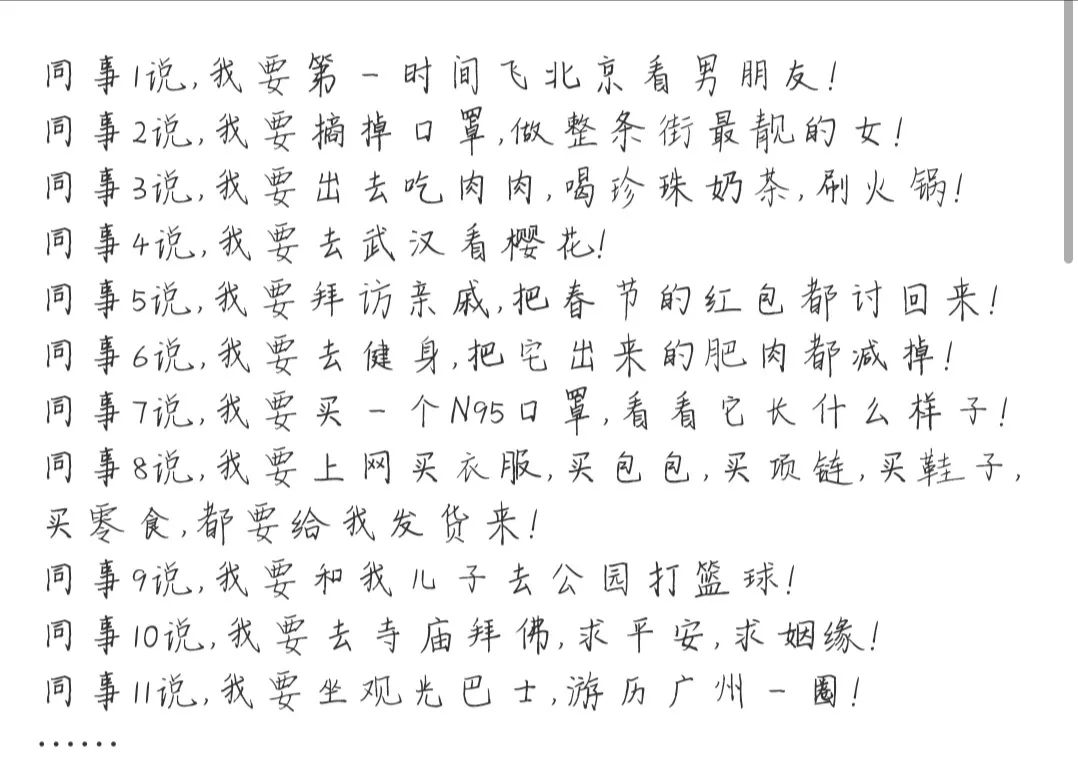 同事1说,我要第一时间飞北京看男朋友!
同事2说,我要摘掉口罩,做整条街最靓的女!
同事3说,我要出去吃肉肉,喝珍珠奶茶,刷火锅!
同事4说,我要去武汉看樱花!
同事5说,我要拜访亲戚,把春节的红包都讨回来!
同事6说,我要去健身,把宅出来的肥肉都减掉!
同事7说,我要买一个N95口罩,看看它长什么样子!
同事8说,我要上网买衣服,买包包,买项链,买鞋子,
买零食,都要给我发货来!
同事9说,我要和我儿子去公园打篮球!
同事10说,我要去寺庙拜佛,求平安,求姻缘!
同事11说,我要坐观光巴士,游历广州一圈!
······